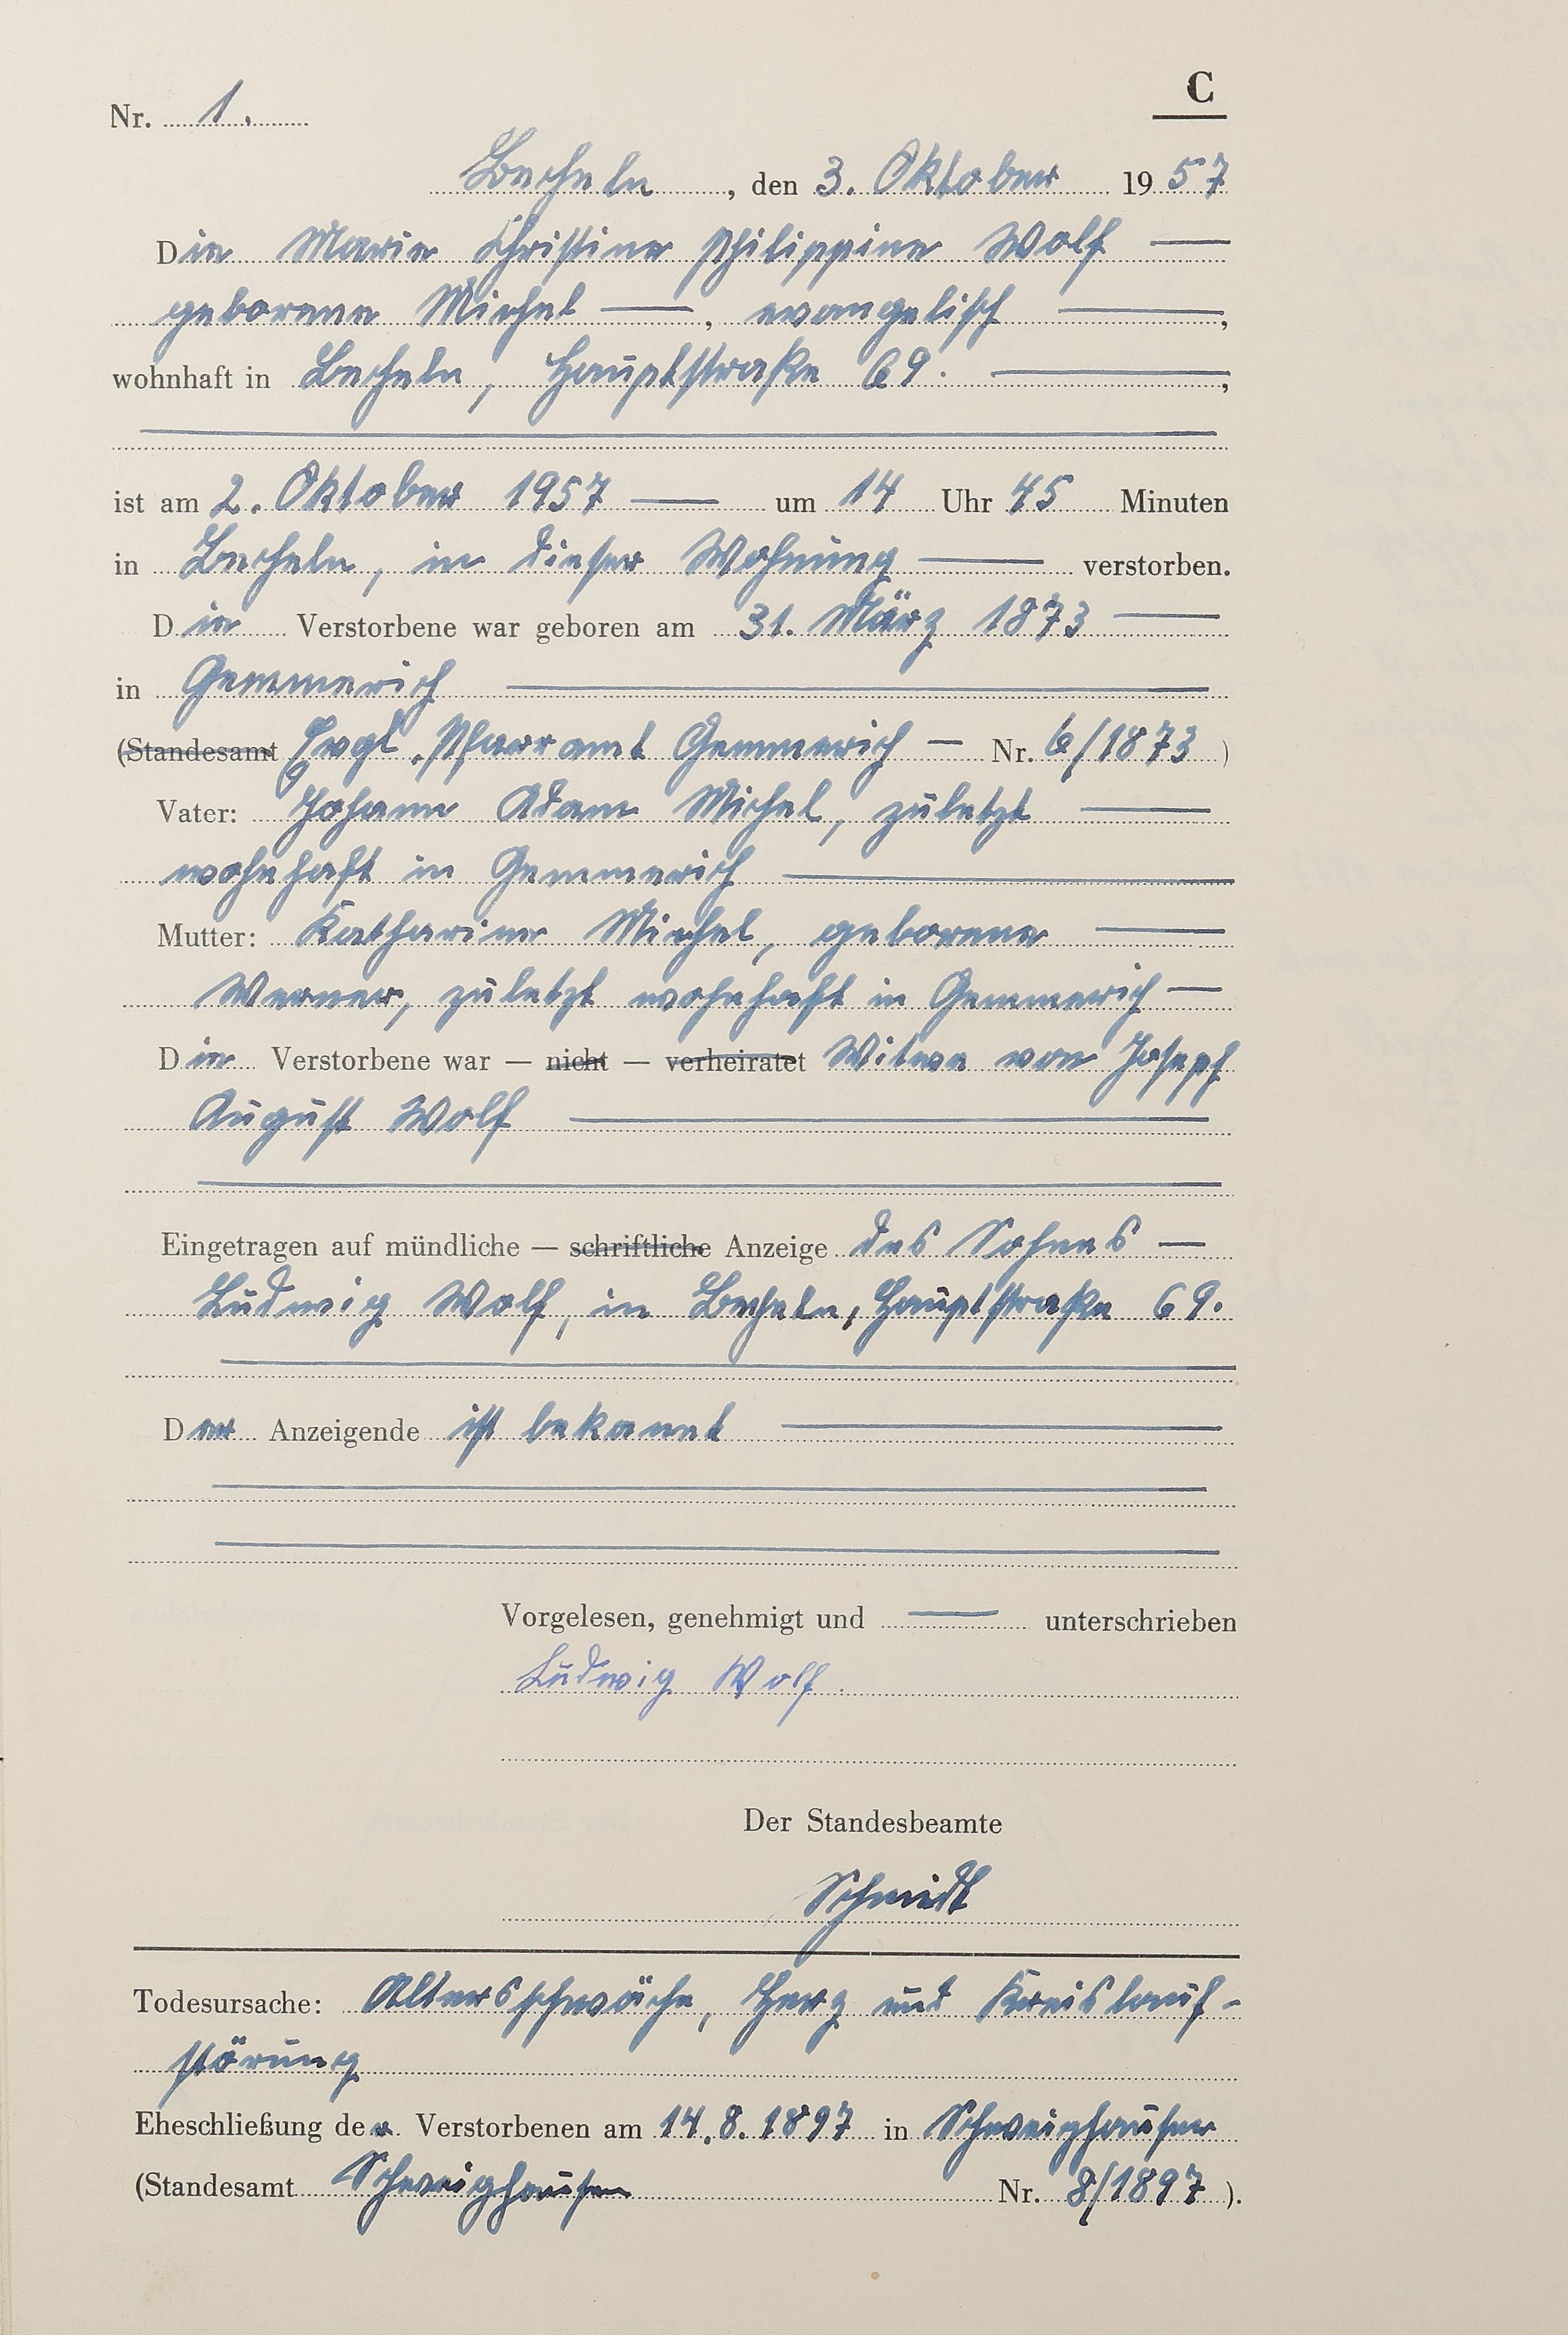 C
Nr. 1.
Becheln, den 3. Oktober 1957
Die Marie Christine Philippine Wolf —
geborene Michel —, evangelisch —,
wohnhaft in Becheln, Hauptstraße 69. —,
ist am 2. Oktober 1957 — um 14 Uhr 45 Minuten
in Becheln, in dieser Wohnung — verstorben.
Die Verstorbene war geboren am 31. März 1873 —
in Gemmerich —
(Standesamt Evgl. Pfarramt Gemmerich — Nr. 6/1873)
Vater: Johann Adam Michel, zuletzt —
wohnhaft in Gemmerich —
Mutter: Katharine Michel, geborene —
Werner, zuletzt wohnhaft in Gemmerich —
Die Verstorbene war — nicht — verheiratet Witwe von Josepf
August Wolf —
Eingetragen auf mündliche — schriftliche Anzeige des Sohnes —
Ludwig Wolf, in Becheln, Hauptstraße 69.
Der Anzeigende ist bekannt —
Vorgelesen, genehmigt und — unterschrieben
Ludwig Wolf.
Der Standesbeamte
Schmidt
Todesursache: Altersschwäche, Herz und Kreislauf-
störung
Eheschließung der Verstorbenen am 14.8.1897 in Schweighausen
(Standesamt Schweighausen Nr. 8/1897).